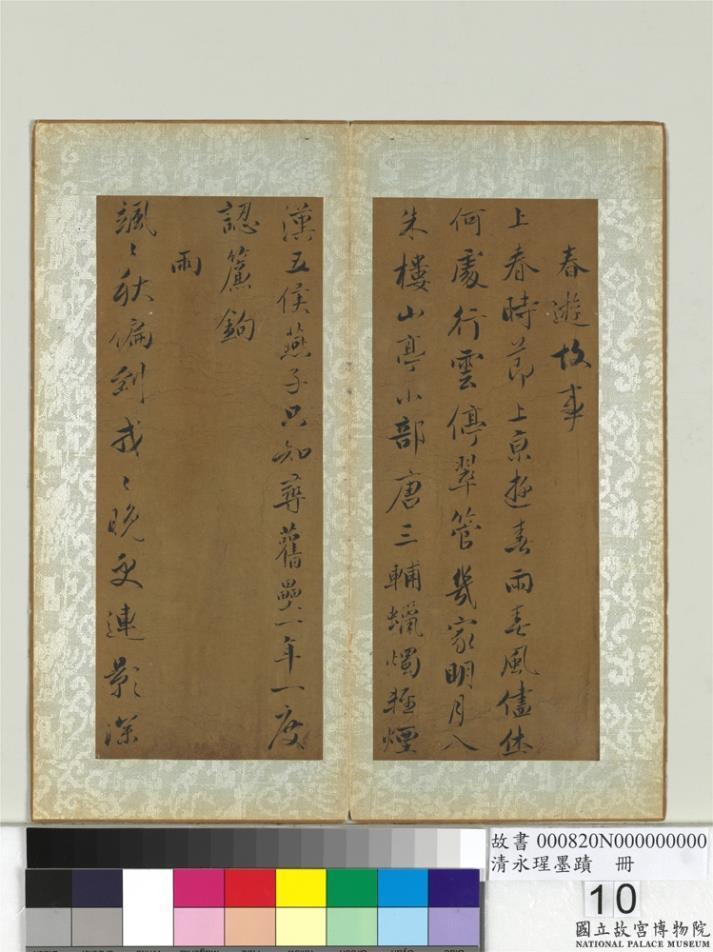 春遊故事
上春時節上京遊春雨春風儘
何處行雲停翠管幾家明月八
朱樓山亭小部唐三輔蠟燭輕煙
漢五侯燕子只知尋舊壘一年一度
認簾鉤
雨
颯〻秋偏到戎〻晚更連影深
故書 000820N000000000
清永瑆墨蹟 冊
10
國立故宮博物院
NATIONAL PALACE MUSEUM